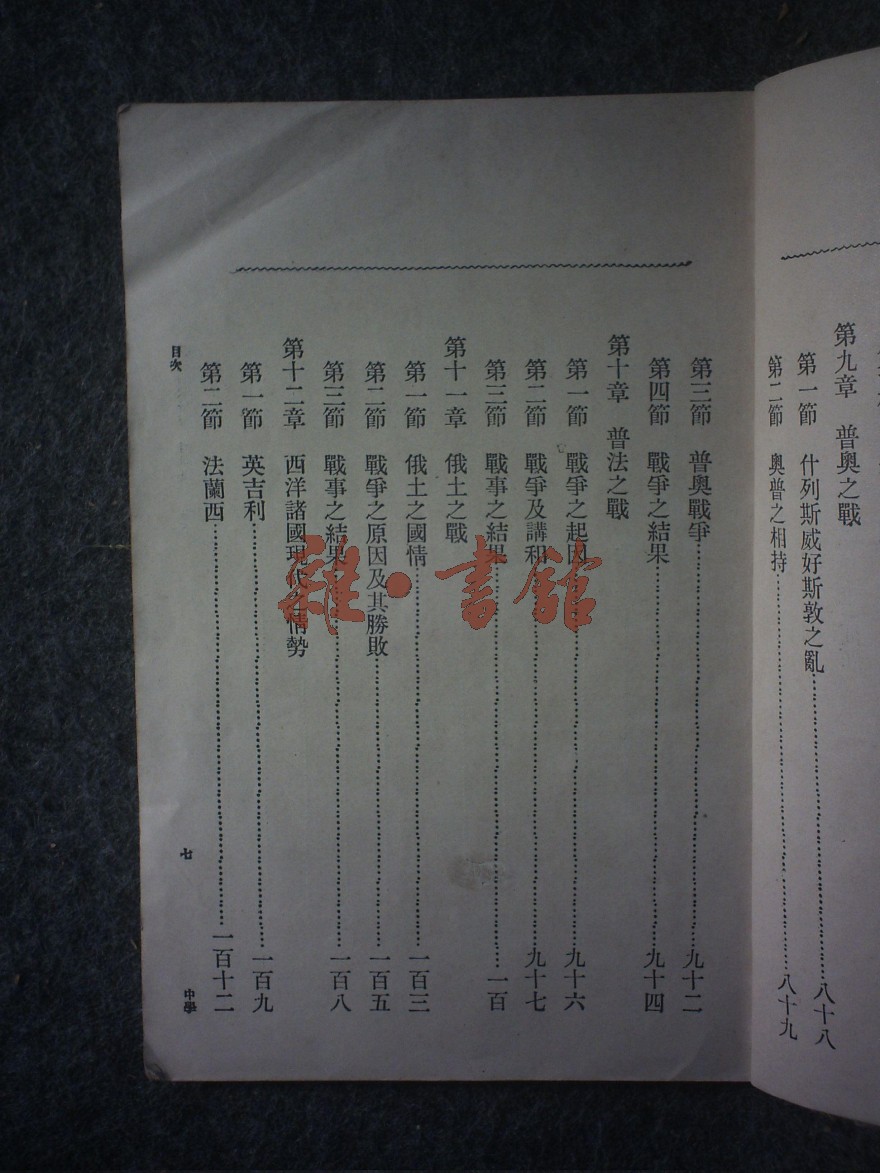 第九章 普奧之戰
第一節 什列斯威好斯敦之亂……八十八
第二節 奧普之相持……八十九
第三節 普奧戰爭……九十二
第四節 戰爭之結果……九十四
第十章 普法之戰
第一節 戰爭之起因……九十六
第二節 戰爭及講和……九十七
第三節 戰事之結果……一百
第十一章 俄土之戰
第一節 俄土之國情……一百三
第二節 戰爭之原因及其勝敗……一百五
第三節 戰事之結果……一百八
第十二章 西洋諸國現代之情勢
第一節 英吉利……一百九
第二節 法蘭西……一百十二
目次
七
中學
雜·書館